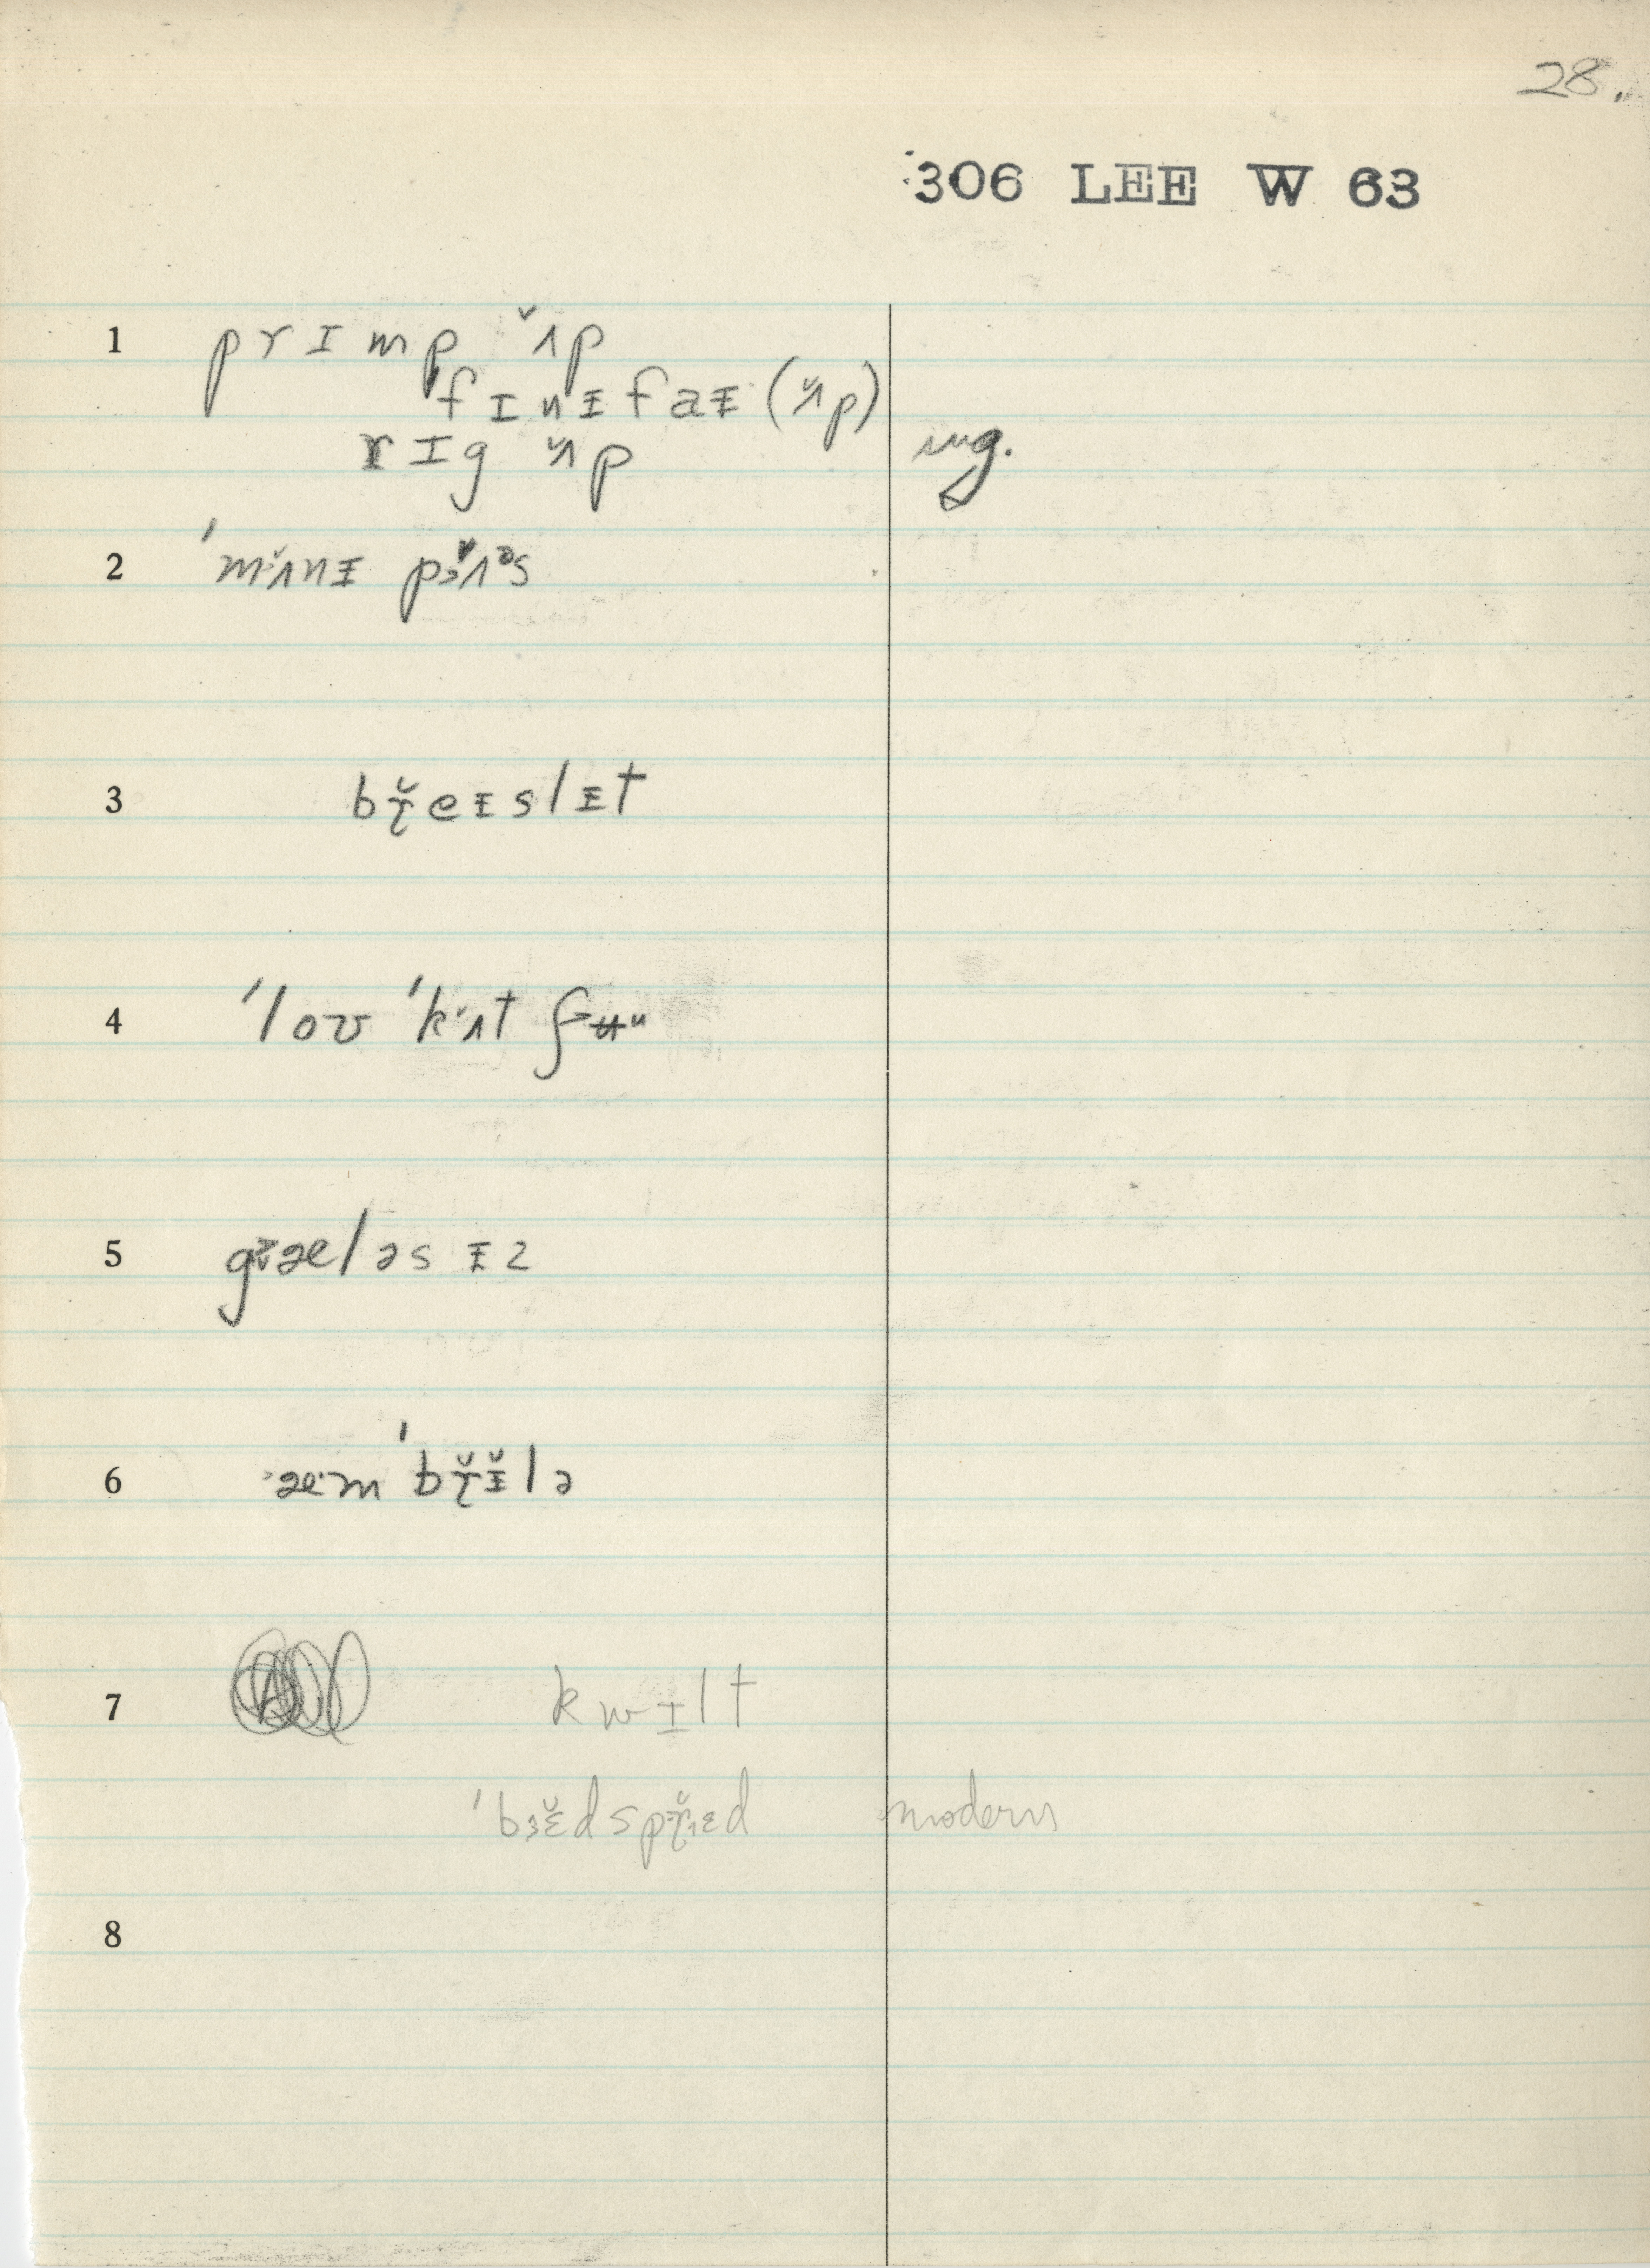 28.
306 LEE W 63
1 prɪmp ʌ̌p
fɪnɪ̵faɪ̵ (ʌ̌p)
rɪg ʌ̌p ing.
2 ˈmʌ̌nɪ̵ pɜʌ̌ᵊs
3 bɼ̌eɪ̵slɪ̵t
4 ˈloʊ ˈkʌt ʃʉᵘ
5 gælǝsɪ̵z
6 æmˈbɼ̌ɪ̵̌lə
7 kwɪlt
ˈbɜɛ̌dspɼ̌ɛd modern
8